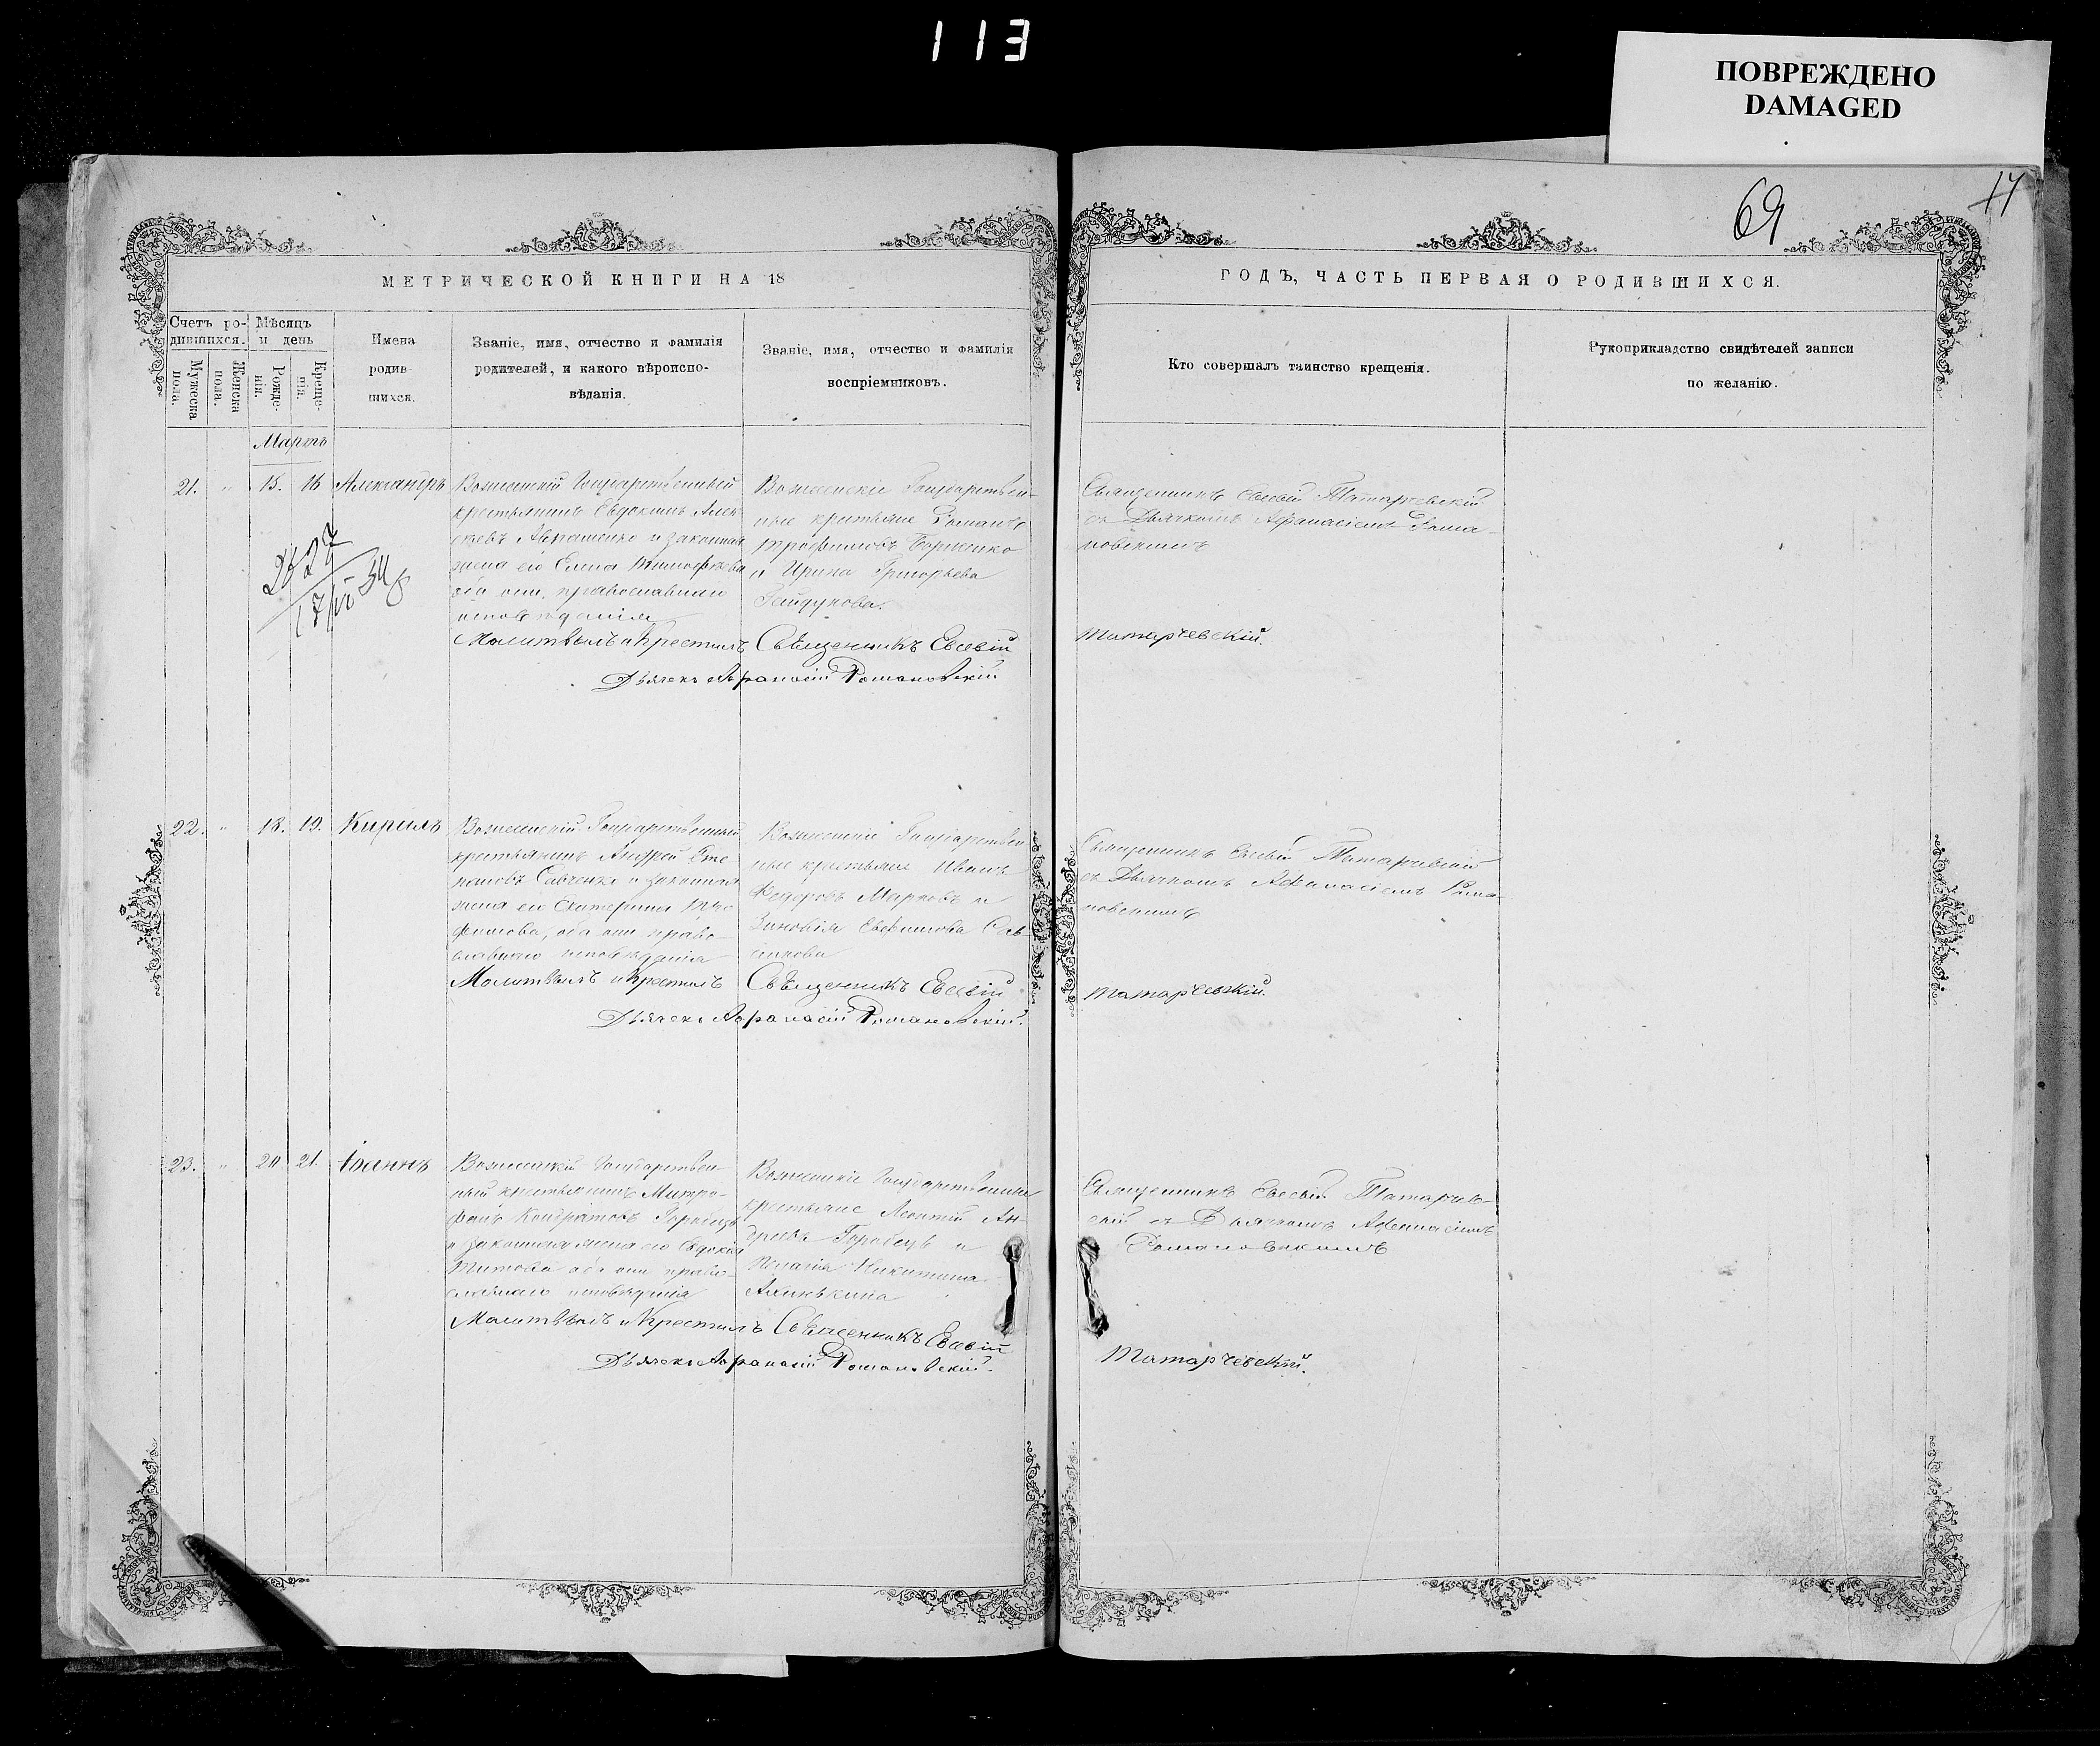 113
ПОВРЕЖДЕНО
DAMAGED
69
17
МЕТРИЧЕСКОЙ КНИГИ НА 18
ГОДЪ, ЧАСТЬ ПЕРВАЯ О РОДИВШИХСЯ.
Счетъ ро-
дившихся.
Мужеска
пола.
Женска
пола.
Мѣсяцъ
и день
Рожде-
нія.
Креще-
нія.
Имена
родив-
шихся.
Званіе, имя, отчество и фамилія
родителей, и какого вѣроиспо-
вѣданія.
Званіе, имя, отчество и фамилія
воспріемниковъ.
Кто совершалъ таинство крещенія.
Рукоприкладство свидѣтелей записи
по желанію.
Мартъ
21. " 15. 16 Александръ
Государственный
крестьянинъ Евдокимъ Алек
сѣевъ и законная
жена его Елена Тимофѣева
оба они, православнаго
исповѣданія
Государствен-
ные крестьяне Романъ
Трофимовъ Борисенко
и Ирина Григорьева
Гайдукова.
Священникъ Евсевій Татарчевскій
съ Дьячкомъ Афанасіемъ Рома-
новскимъ
Молитвилъ и Крестилъ Священникъ Евсевій
Татарчевскій.
Дьячекъ Афанасій Романовскій
22. " 18. 19. Кирилъ
Государственный
крестьянинъ Андрей Сте
пановъ Савченко и законная
жена его Екатерина Тро
фимова, оба они право-
славнаго исповѣданія
Государствен
ные крестьяне Иванъ
Федоровъ Марковъ и
Зиновія Евфимова Сав-
ченкова
Священникъ Евсевій Татарчевскій
съ Дьячкомъ Афанасіемъ Рома-
новскимъ
Молитвилъ и Крестилъ Священникъ Евсевій
Татарчевскій.
Дьячекъ Афанасій Романовскій.
23. " 20. 21. Іоаннъ
Государствен-
ный крестьянинъ Митро-
фанъ Кондратовъ Горобецъ
и законная жена его Евдокія
Титова оба они право-
славнаго исповѣданія
Государственные
крестьяне Леонтій Ан-
дреевъ Горобецъ и
Пелагія Никитина
Священникъ Евсевій Татарчев-
скій съ Дьячкомъ Афанасіемъ
Романовскимъ
Молитвилъ и Крестилъ Священникъ Евсевій
Татарчевскій.
Дьячекъ Афанасій Романовскій.